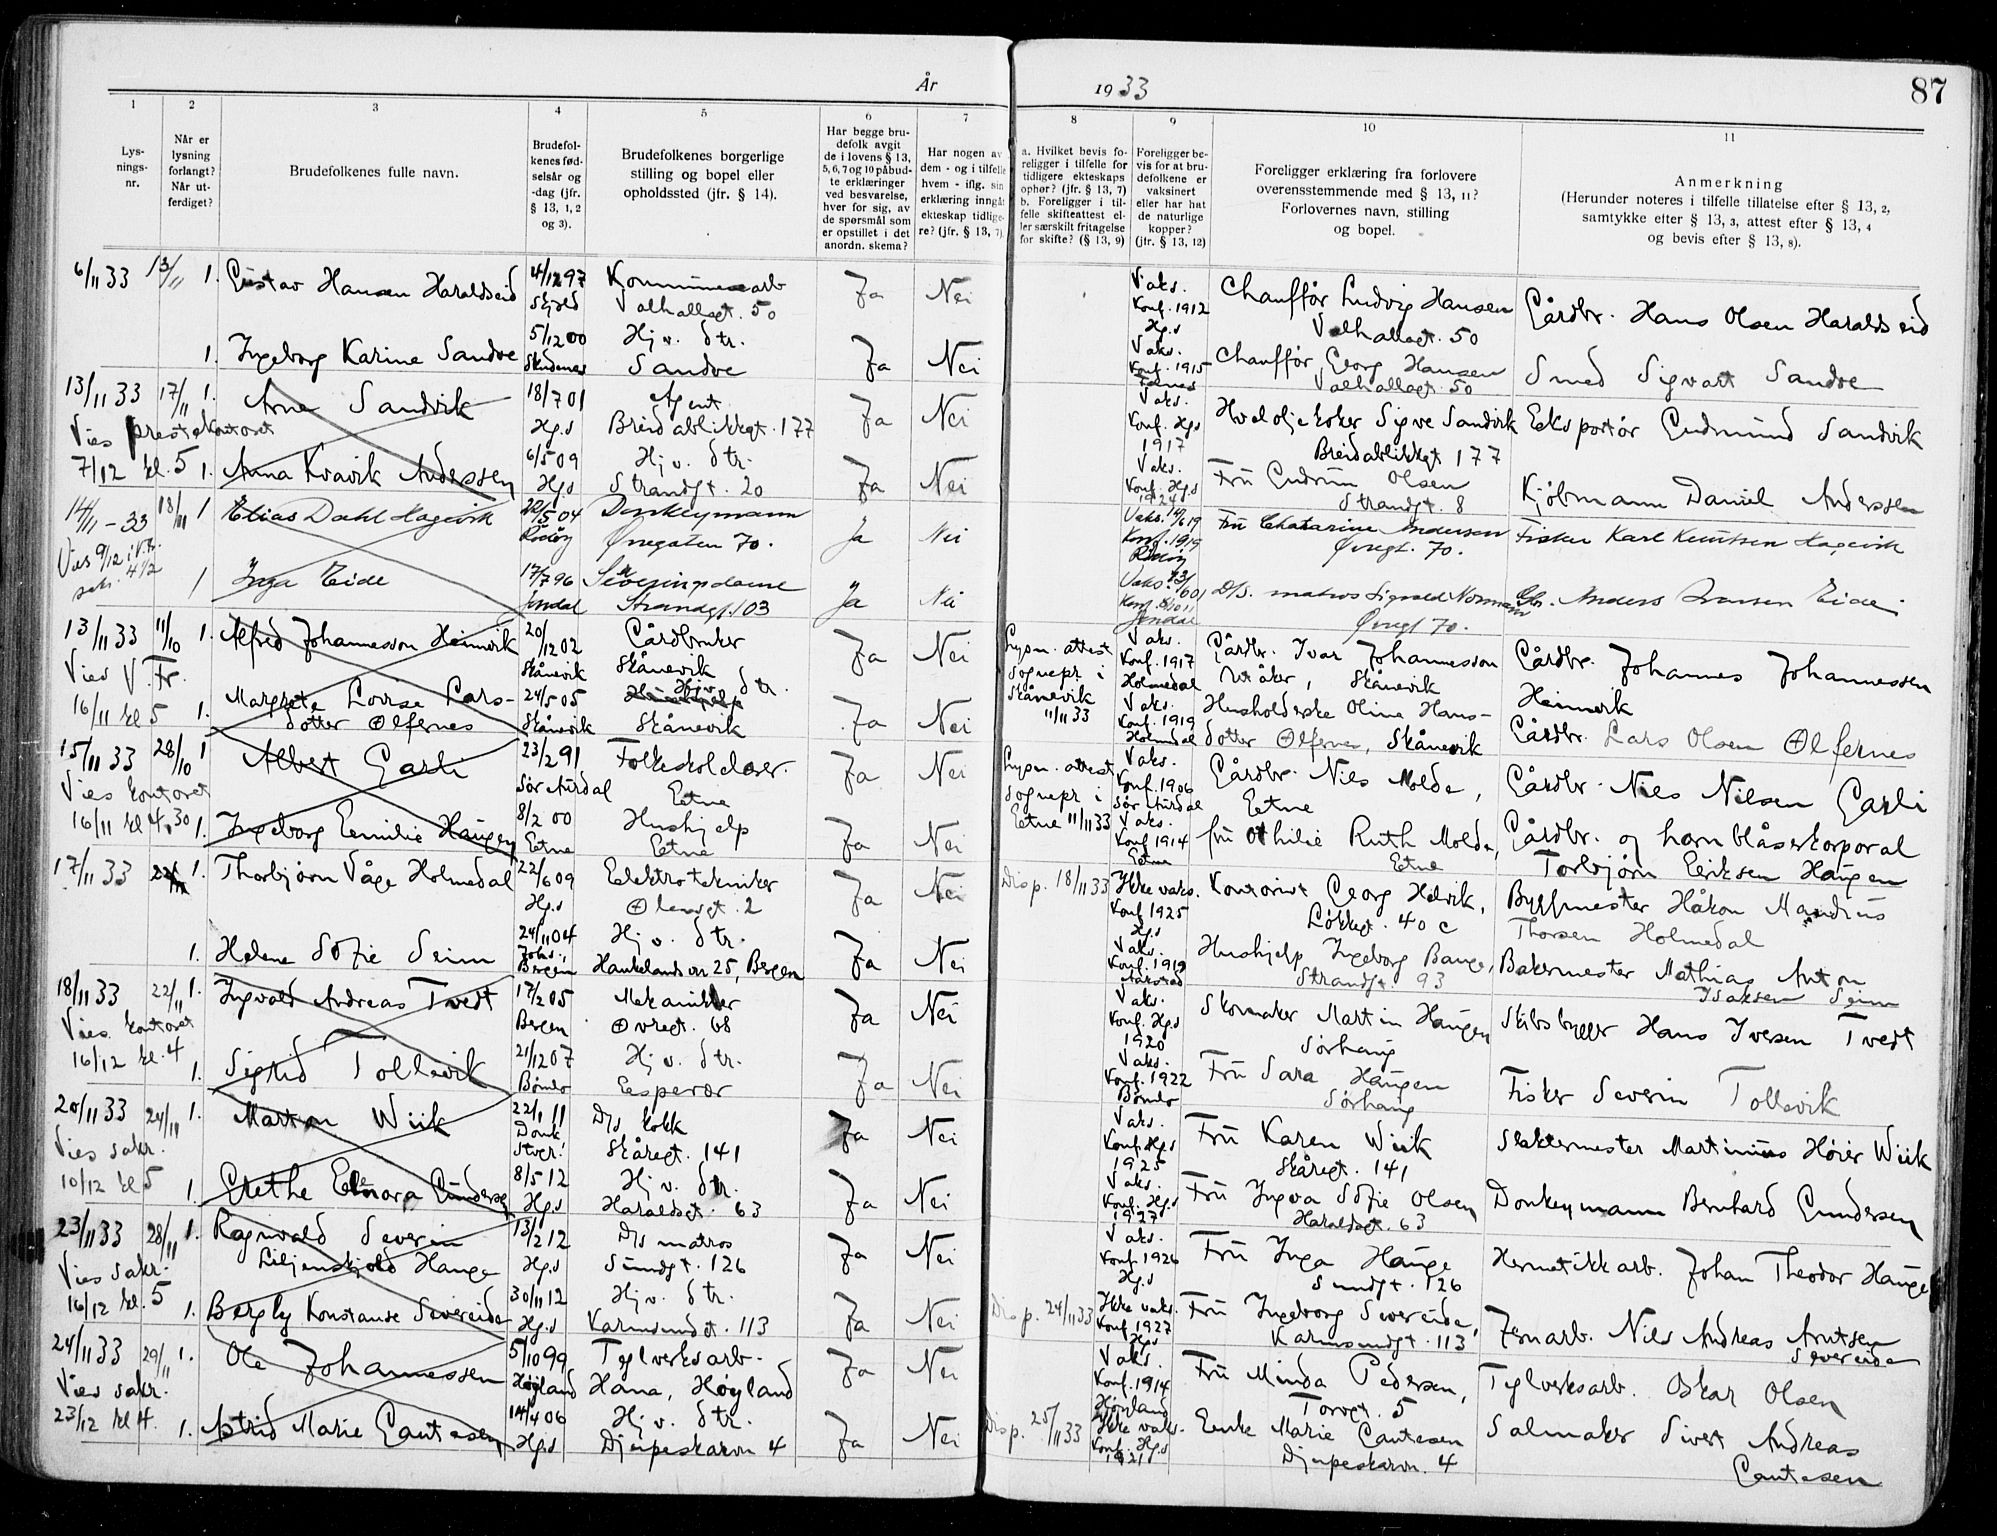 År 1933
87
1 2 3 4 5 6 7 8 9 10 11
Lysningsnr.
Når er lysning forlangt? Når utferdiget?
Brudefolkenes fulle navn.
Brudefolkenes fødselsår og -dag (jfr. § 13, 1, 2 og 3).
Brudefolkenes borgerlige stilling og bopel eller opholdssted (jfr. § 14).
Har begge brudefolk avgit de i lovens § 13, 5, 6, 7 og 10 påbudte erklæringer ved besvarelse, hver for sig, av de spørsmål som er opstillet i det anordn. skema?
Har nogen av dem - og i tilfelle hvem - iflg. sin erklæring inngåt ekteskap tidligere? (jfr. § 13, 7).
a. Hvilket bevis foreligger i tilfelle for tidligere ekteskaps ophør? (jfr. § 13, 7) b. Foreligger i tilfelle skifteattest eller særskilt fritagelse for skifte? (§ 13, 9)
Foreligger bevis for at brudefolkene er vaksinert eller har hat de naturlige kopper? (jfr. § 13, 12)
Foreligger erklæring fra forlovere overensstemmende med § 13, 11? Forlovernes navn, stilling og bopel.
Anmerkning (Herunder noteres i tilfelle tillatelse efter § 13, 2, samtykke efter § 13, 3, attest efter § 13, 4 og bevis efter § 13, 8).
6/11 33 13/11 1. Gustav Hansen Haraldseid 4/12 97 Skjold Kommunearb Valhallagt. 50 Ja Nei Vaks. Konf. 1912 Hg.s Chauffør Ludvig Hansen Valhallagt. 50 Gårdbr. Hans Olsen Haraldseid
1. Ingeborg Karine Sandve 5/12 00 Skudenes Hj v. dtr. Sandve Ja Nei Vaks. Konf. 1915 Chauffør Georg Hansen Valhallagt. 50 Smed Sigvart Sandve
13/11 33 17/11 1. Arne Sandvik 18/7 01 Hg.s Agent Breidablikkgt. 177 Ja Nei Vaks. Konf. Hgs 1917 Hvaloljekoker Sigve Sandvik Breidablikkgt 177 Eksportør Gudmund Sandvik
Vies prestekontoret 7/12 kl. 5 1. Anna Kvavik Anderssen 6/5 09 Hg.s Hj v. dtr. Strandgt. 20 Ja Nei Vaks. Konf. Hg.s 1924 Fru Gudrun Olsen Strandgt. 8 Kjøbmann Daniel Anderssen
14/11 - 33 18/11 1 Elias Dahl Hagevik 22/5 04 Rødøy Donkeymann Øvregaten 70. Ja Nei Vaks. 14/6 19 Konf. 1919 Rødøy Fru Chatarine Andersen Øvregt. 70. Fisker Karl Knutsen Hagevik
Vies 9/12 i V.Fr. sakr. 4 1/2 1 Inga Eide 17/7 96 Jondal Strandgt. 103 Ja Nei D/S. matros Sigvald Normann Øvregt 70. Gbr. Anders Larsen Eide
13/11 33 11/10 1. Alfred Johannesson Heimvik 20/12 02 Skånevik Gårdbruker Skånevik Ja Nei Lysn. attest sognepr i Skånevik 11/11 33 Vaks. Konf. 1917 Holmedal Gårdbr. Ivar Johannesson Vråker, Skånevik Gårdbr. Johannes Johannessen Heimvik
Vies V. Fr. 16/11 kl 5 1. Margrete Lovise Larsdotter Ølfernes 24/5 05 Skånevik Hj v. dtr. Skånevik Ja Nei Vaks. Konf. 1919 Holmedal Husholderske Oline Hansdotter Ølfernes, Skånevik Gårdbr. Lars Olsen Ølfernes
15/11 33 28/10 1 Albert Garli 23/2 91 Sør Aurdal Folkeskolelærer. Etne Ja Nei Lysn. attest sognepr i Etne 11/11 33 Vaks. Konf. 1906 Sør Aurdal Gårdbr. Nils Molde, Etne Gårdbr. Nils Nilsen Garli
Vies kontoret 16/11 kl 4,30 1. Ingeborg Emilie Haugen 8/2 00 Etne Hushjelp Etne Ja Nei Vaks. Konf. 1914 Etne fru Othilie Ruth Molde, Etne Gårdbr. og hornblåserkorporal Torbjørn Eriksen Haugen
17/11 33 22/11 1. Thorbjørn Våge Holmedal 22/6 09 Hg.s Elektrotekniker Ølensgt. 2 Ja Nei Disp. 18/11 33 Ikke vaks. Konf 1925 Hg.s Kontorist Georg Helvik, Løkkegt. 40 c Byggmester Håkon Mandius Thorsen Holmedal
1. Helene Sofie Seim 24/11 04 Johs., Bergen Hj v. dtr. Haukelandsvn 25, Bergen Ja Nei Vaks. Konf. 1919 Hushjelp Ingeborg Bauge, Strandgt. 93 Bakermester Mathias Anton Isaksen Seim
18/11 33 22/11 1. Ingvald Andreas Tvedt 17/2 05 Bergen Mekaniker Øvregt. 68 Ja Nei Vaks. Konf. Hg.s 1920 Skomaker Martin Haugen Sørhaug Skibsbygger Hans Iversen Tvedt
Vies kontoret 16/12 kl. 4 1. Sigrid Tollevik 21/12 07 Bømlo Hj v. dtr. Espevær Ja Nei Vaks. Konf. 1922 Bømlo Fru Sara Haugen Sørhaug Fisker Severin Tollevik
20/11 33 24/11 1. Marton Wiik 22/1 11 D/s kokk Skåregt. 141 Ja Nei Vaks. Konf. Hg.s 1925 Fru Karen Wiik Skåregt. 141 Slaktermester Martinius Høier Wiik
Vies sakr. 10/12 kl 5 1. Grethe Elenora Gundersen 8/5 12 Hg.s Hj v. dtr. Haraldsgt. 63 Ja Nei Vaks. Konf. Hg.s 1927 Fru Ingva Sofie Olsen Haraldsgt. 63 Donkeymann Bernhard Gundersen
23/11 33 28/11 1. Ragnvald Severin Liljenskjold Hauge 13/2 12 Hg.s D/s matros Sundgt. 126 Ja Nei Vaks. Konf 1926 Hg.s Fru Inga Hauge Sundgt. 126 Hermetikkarb. Johan Theodor Hauge
Vies sakr. 16/12 kl. 5 1. Bergly Konstanse Severeide 30/11 12 Hg.s Hj v. dtr. Karmsundgt. 113 Ja Nei Disp. 24/11 33 Ikke vaks. Konf 1927 Hgs Fru Ingeborg Severeide, Karmsundgt. 113 Jernarb. Nils Andreas Arntsen Severeide
24/11 33 29/11 1. Ole Johannessen 5/10 99 Høyland Teglverksarb. Hana, Høyland Ja Nei Vaks. Konf. 1914 Høyland Fru Minda Pedersen, Torvgt. 5 Teglverksarb. Oskar Olsen
Vies sakr. 23/12 kl 4. 1. Astrid Marie Gautesen 14/4 06 Hg.s Hj v. dtr. Djupeskarvn 4 Ja Nei Disp. 25/11 33 Ikke vaks. Konf. Hg.s 1921 Enke Marie Gautesen Djupeskarvn. 4 Salmaker Sivert Andreas Gautesen